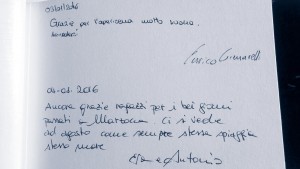 Grazie per l'esperienza molto buona.
Enrico
04-01-2016
Ancora grazie ragazzi per i bei giorni
passati a Marzocca. Ci si vede
ad agosto come sempre stessa spiaggia
stesso mare
e Antonio